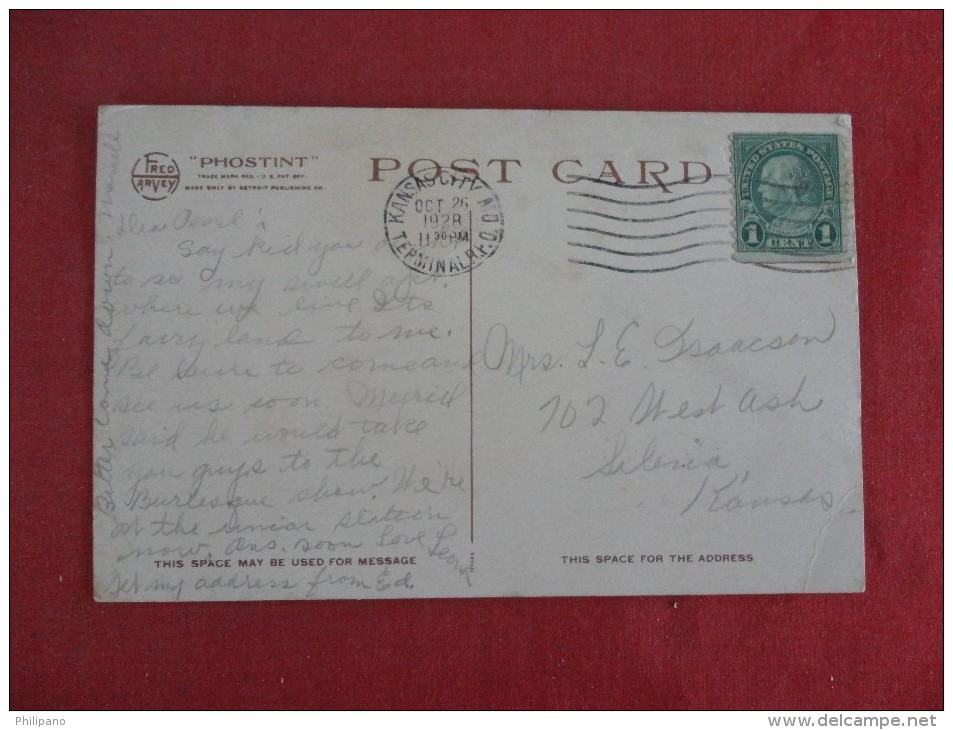 FRED HARVEY
"PHOSTINT"
TRADE MARK REG. - U.S. PAT. OFF.
MADE ONLY BY DETROIT PUBLISHING CO.
POST CARD
KANSAS CITY, MO.
OCT 26
1928
11 30 PM
TERMINAL R.P.O.
UNITED STATES POSTAGE
1 CENT 1
Dear Pearl:
Say kid you
to see my swell apt.
where we live Its
fairy land to me.
Be sure to come and
see us soon. Merrill
said he would take
you guys to the
Burlesque show. We're
at the union station
now. Ans. soon love Leona
Get my address from Ed.
Better come down.
Mrs. L. E. Isaacson
702 West Ash
Salina,
Kansas
THIS SPACE MAY BE USED FOR MESSAGE
THIS SPACE FOR THE ADDRESS
Philipano
www.delcampe.net